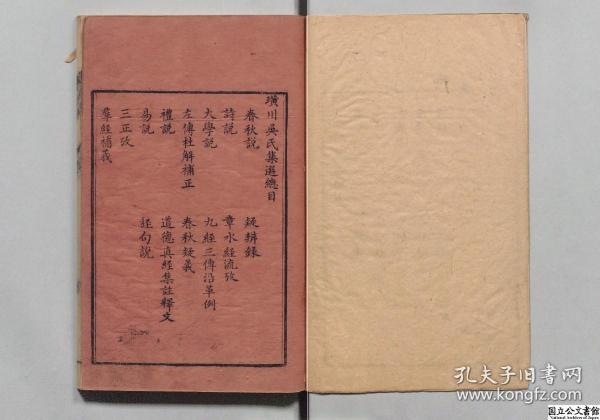 璜川吳氏集選總目
春秋說
疑辨錄
詩說
章水經流攷
大學說
九經三傳沿革例
左傳杜解補正
春秋疑義
禮說
道德真經集註釋文
易說
經句說
三正攷
羣經補義
孔夫子旧書网
kongfz.com
国立公文書館
National Archives of Japan